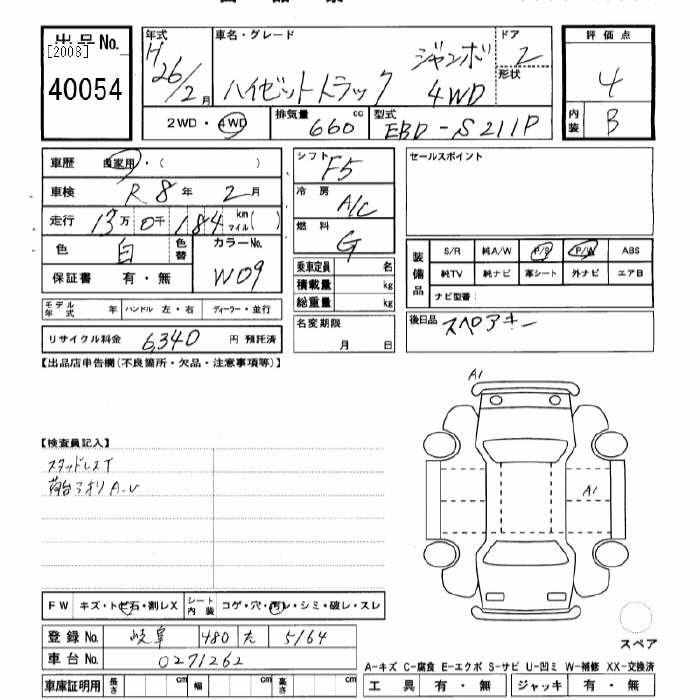 出品No. [2008]
40054
年式 H26/2月
車名・グレード ハイゼットトラック ジャンボ 4WD
ドア 2
形状
2WD・4WD
排気量 660 cc
型式 EBD-S211P
評価点 4
内装 B
車歴 自家用・( )
車検 R8年 2月
走行 13万 0千 184 km マイル( )
色 白 色替
カラーNo. W09
保証書 有・無
モデル年式 年 ハンドル 左・右 ディーラー・並行
リサイクル料金 6,340 円 預託済
シフト F5
冷房 A/C
燃料 G
乗車定員 名
積載量 kg
総重量 kg
名変期限 月 日
セールスポイント
装備品 S/R 純A/W P/S P/W ABS
純TV 純ナビ 革シート 外ナビ エアB
ナビ型番：
後日品 スペアキー
【出品店申告欄(不良箇所・欠品・注意事項等)】
A1
【検査員記入】
スタッドレスT
荷台アオリA.U
A1
FW キズ・トビ石・割レX シート内装 コゲ・穴・汚レ・シミ・破レ・スレ
スペア
登録No. 岐阜 480 た 5164
車台No. 0271262
A-キズ C-腐食 E-エクボ S-サビ U-凹ミ W-補修 XX-交換済
車庫証明用 長さ cm 幅 cm 高さ cm
工具 有・無 ジャッキ 有・無